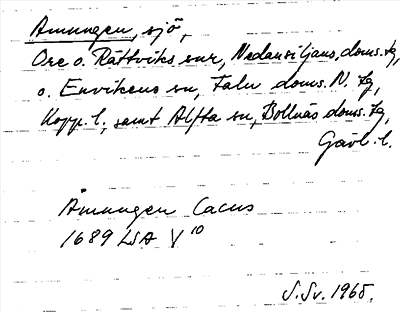 Amungen, sjö,
Ore o. Rättviks snr, Nedansiljans doms. tg,
o. Envikens sn, Falu doms. N. tg,
Kopp. l., samt Alfta sn, Bollnäs doms. tg,
Gävl. l.
Åmungen Lacus
1689 LSA V 10
S.Sv. 1965.